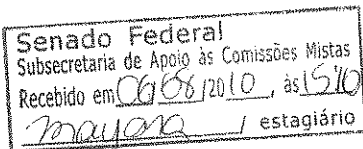 Senado Federal
Subsecretaria de Apoio às Comissões Mistas
Recebido em 06/08/2010, às 15:10
Mayara / estagiário